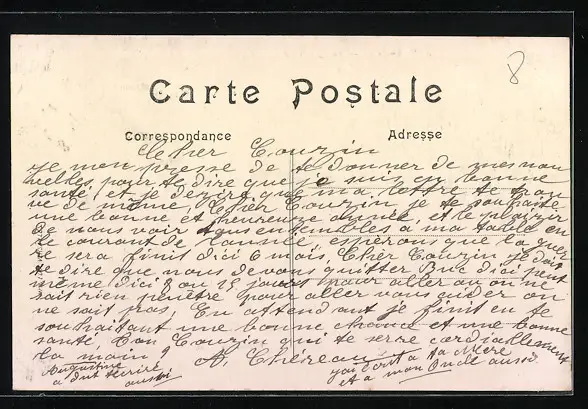 8
Carte Postale
Correspondance Adresse
Cher Couzin
Je mon presse de te donner de mes nou
velles, pour te dire que je suis en bonne
santé et je dezire que ma lettre te trou
ve de même, Cher Couzin je te souhaite
une bonne et heureuze année, et le plaizir
de nous voir tous ensembles a ma table en
le courant de l'année, espérons que la guer
re sera finit d'ici 6 mois, Cher Couzin je doit
te dire que nous devons quitter Buc d'ici peut
même d'ici 8 ou 15 jours pour aller ou on ne
sait rien peutêtre pour aller vous aider on
ne sait pas, En attendant je finit en te
souhaitant une bonne chance et une bonne
santé, Ton Couzin qui te serre cordiallement
la main, A, Chéreau
Augustine
a dut t'écrire
aussi
j'ai écrit a ta Mère
et a mon Oncle aussi